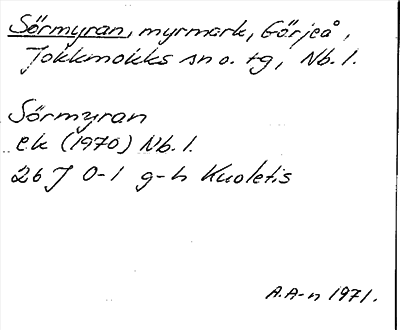 Sörmyran, myrmark, Görjeå,
Jokkmokks sn o. tg, Nb. l.
Sörmyran
ek (1970) Nb. l.
26 J 0-1 g-h Kuoletis
A.A-n 1971.